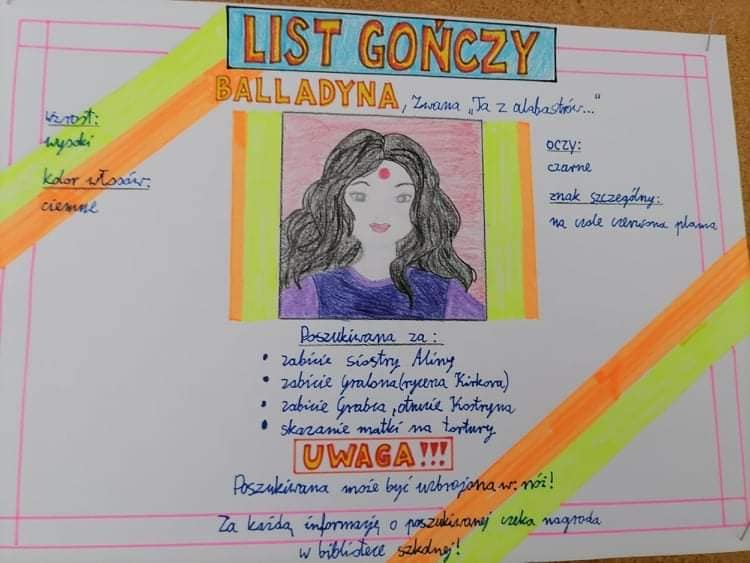 LIST GOŃCZY
BALLADYNA, Zwana „Ta z alabastrów..."
Wzrost:
wysoki
Kolor włosów:
ciemne
oczy:
czarne
znak szczególny:
na czole czerwona plama
Poszukiwana za:
• zabicie siostry Aliny
• zabicie Gralona (rycerza Kirkora)
• zabicie Grabca, otrucie Kostryna
• skazanie matki na tortury
UWAGA!!!
Poszukiwana może być uzbrojona w: nóż!
Za każdą informację o poszukiwanej czeka nagroda
w bibliotece szkolnej!